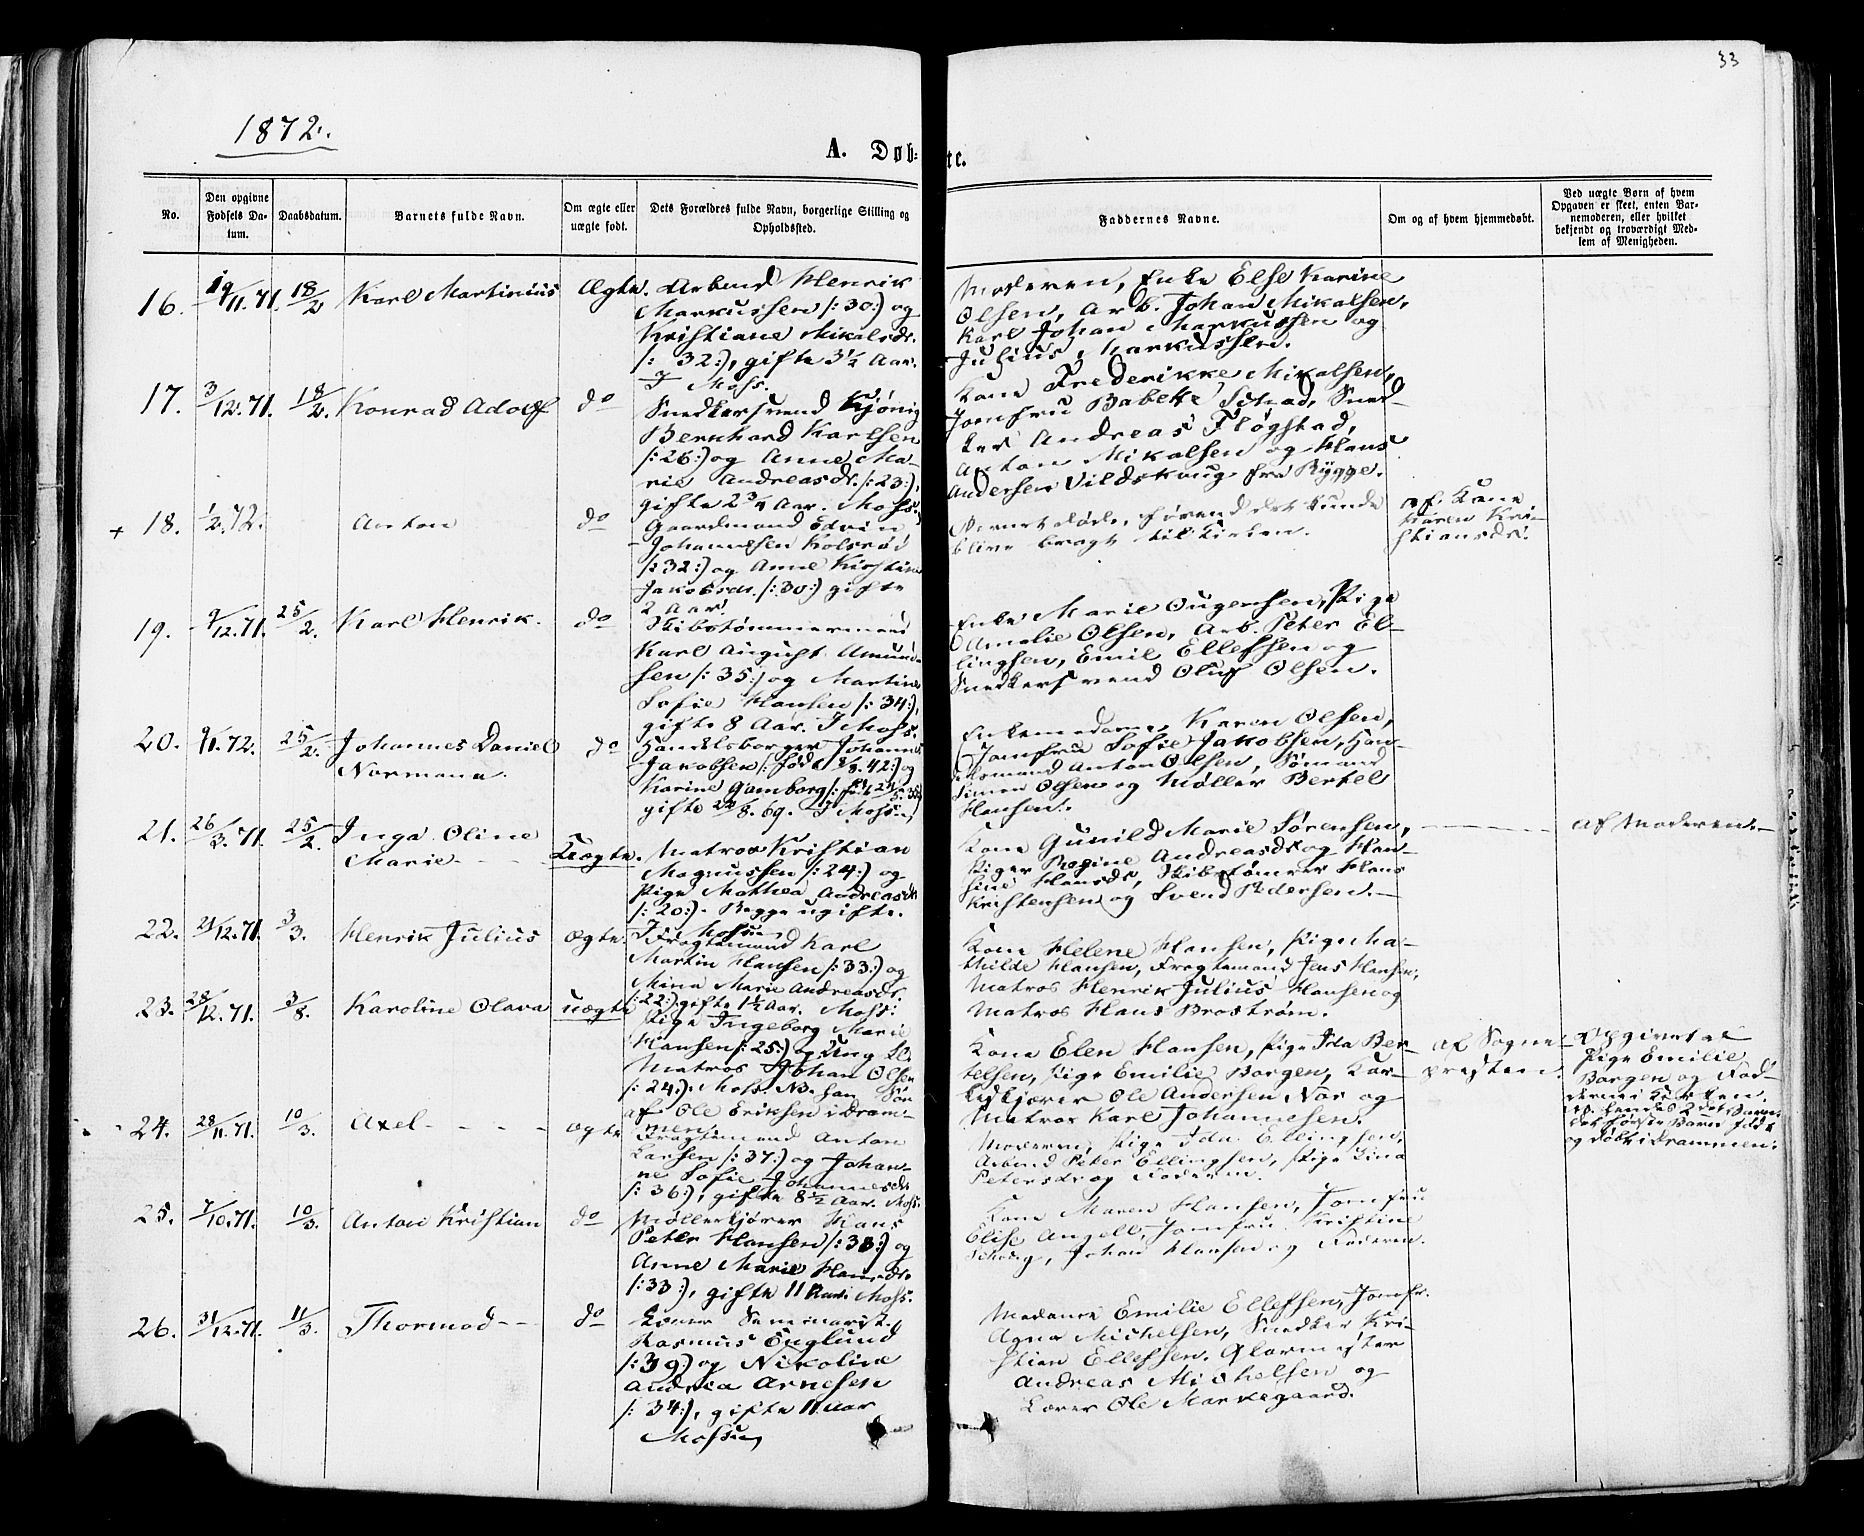 33
1872.
A. Døb-
te.
No.
Den opgivne
Fødsels Da-
tum.
Daabsdatum.
Barnets fulde Navn.
Om ægte eller
uægte født.
Dets Forældres fulde Navn, borgerlige Stilling og
Opholdssted.
Faddernes Navne.
Om og af hvem hjemmedøbt.
Ved uægte Børn af hvem
Opgaven er skeet, enten Bar-
nemoderen, eller hvilket
bekjendt og troværdigt Med-
lem af Menigheden.
16. 19/11.71. 18/2 Karl Martinius Ægte. Arbmd Henrik
Markussen /:30:/ og
Kristiane Mikalsdr.
/:32:/, gifte 3½ Aar.
I Moss.
Moderen, Enke Else Karine
Olsen, Arb. Johan Mikalsen,
Karl Johan Markussen og
Julius Markussen.
17. 3/12.71. 18/2. Konrad Adolf do Snedkersvend Kjønig
Bernhard Karlsen
/:26:/ og Anne Ma-
rie Andreasdr. /:23:/,
gifte 2¾ Aar. Moss.
Kone Frederikke Mikalsen,
Jomfru Babeke Schad, Sned-
ker Andreas Fløgstad,
Anton Mikalsen og Hans
Andersen Vildskoug fra Rygge.
+ 18. 1/2.72. Anton do Gaardmand Edvin
Johannesen Kolsrød
/:32:/ og Anne Kirstine
Jakobsdr. /:30:/ gifte
2 Aar.
Barnet døde, førend det kunde
blive bragt til Kirken.
af Kone
Karen Kri-
stiansdr.
19. 9/12.71. 25/2. Karl Henrik. do Skibstømmermand
Karl August Amund-
sen /:35:/ og Martine
Sofie Hansen /:34:/,
gifte 8 Aar. I Moss.
Enke Marie Ougensen, Pige
Amalie Olsen, Arb. Peter El-
lingsen, Emil Ellefsen og
Snedkersvend Oluf Olsen.
20. 9/1.72. 25/2. Johannes Daniel
Normann. do Handelsborger Johannes
Jakobsen /: født 8/8.42:/ og
Karine Gamborg
gifte 22/8.69. I Moss.
Enkemadame Karen Olsen,
Jomfru Sofie Jakobsen, Han-
delsmand Anton Olsen, Sømand
Simon Olsen og Møller Bertel
Hansen.
21. 26/3.71. 25/2. Inga Oline
Marie - - - Uægte. Matros Kristian
Magnussen /:24:/ og
Pige Mathea Andreasdr
/:20:/. Begge ugifte.
I Moss.
Kone Gunild Marie Sørensen,
Piger Regine Andreasdr og Han-
sine Hansdr, Skibstømrer Hans
Kristensen og Svend Pedersen. -
af Moderen. -
22. 21/12.71. 3/3. Henrik Julius ægte. Fragtemand Karl
Martin Hansen /:33:/ og
Mina Marie Andreasdr.
/:22:/, gifte 1½ Aar. Moss.
Kone Helene Hansen, Pige Ma-
thilde Hansen, Fragtemand Jens Hansen,
Matros Henrik Julius Hansen og
Matros Hans Brostrøm.
23. 28/12.71. 3/3. Karoline Olava uægte Pige Ingeborg Marie
Hansen /:25:/ og Ung K.
Matros Johan Olsen
/:24:/. Moss. NB. han Søn
af Ole Eriksen i Dram-
men.
Kone Elen Hansen, Pige Ida Ber-
telsen, Pige Emilie Borgen, Kar-
Ole Andersen Nor og
Matros Karl Johannesen.
af Sogne-
præsten.
Opgivet af
Pige Emilie
Borgen og Fad-
derne i Kirken.
NB. hendes 2det Barn,
det første Barn født
og døbt i Drammen.
24. 28/11.71. 10/3. Axel - - - - ægte Fragtemand Anton
Larsen /:37:/ og Johan-
ne Sofie Johannesdr
/:36:/, gifte 8½ Aar. Moss.
Moderen, Pige Ida Ellingsen,
Arbmd Peter Ellingsen, Pige Lina
Petersdr og Faderen.
25. 7/10.71. 10/3. Anton Kristian do Møllerkjører Hans
Peter Hansen /:38:/ og
Anne Marie Hansdr.
/:33:/, gifte 11 Aar. Moss.
Kone Maren Hansen, Jomfru
Elise Angell, Jomfru Kristine
Johan Hansen og Faderen.
26. 31/12.71. 11/3. Thormod - - do Lærer Seminarist
Rasmus Englund
/:39:/ og Nikoline
Andrea Arnesen
/:34:/, gifte 11 Aar
Moss
Madame Emilie Ellefsen, Jomfr.
Agna Michelsen, Snedker Kri-
stian Ellefsen. Glarmester
Andreas Michelsen og
Lærer Ole Markegaard.